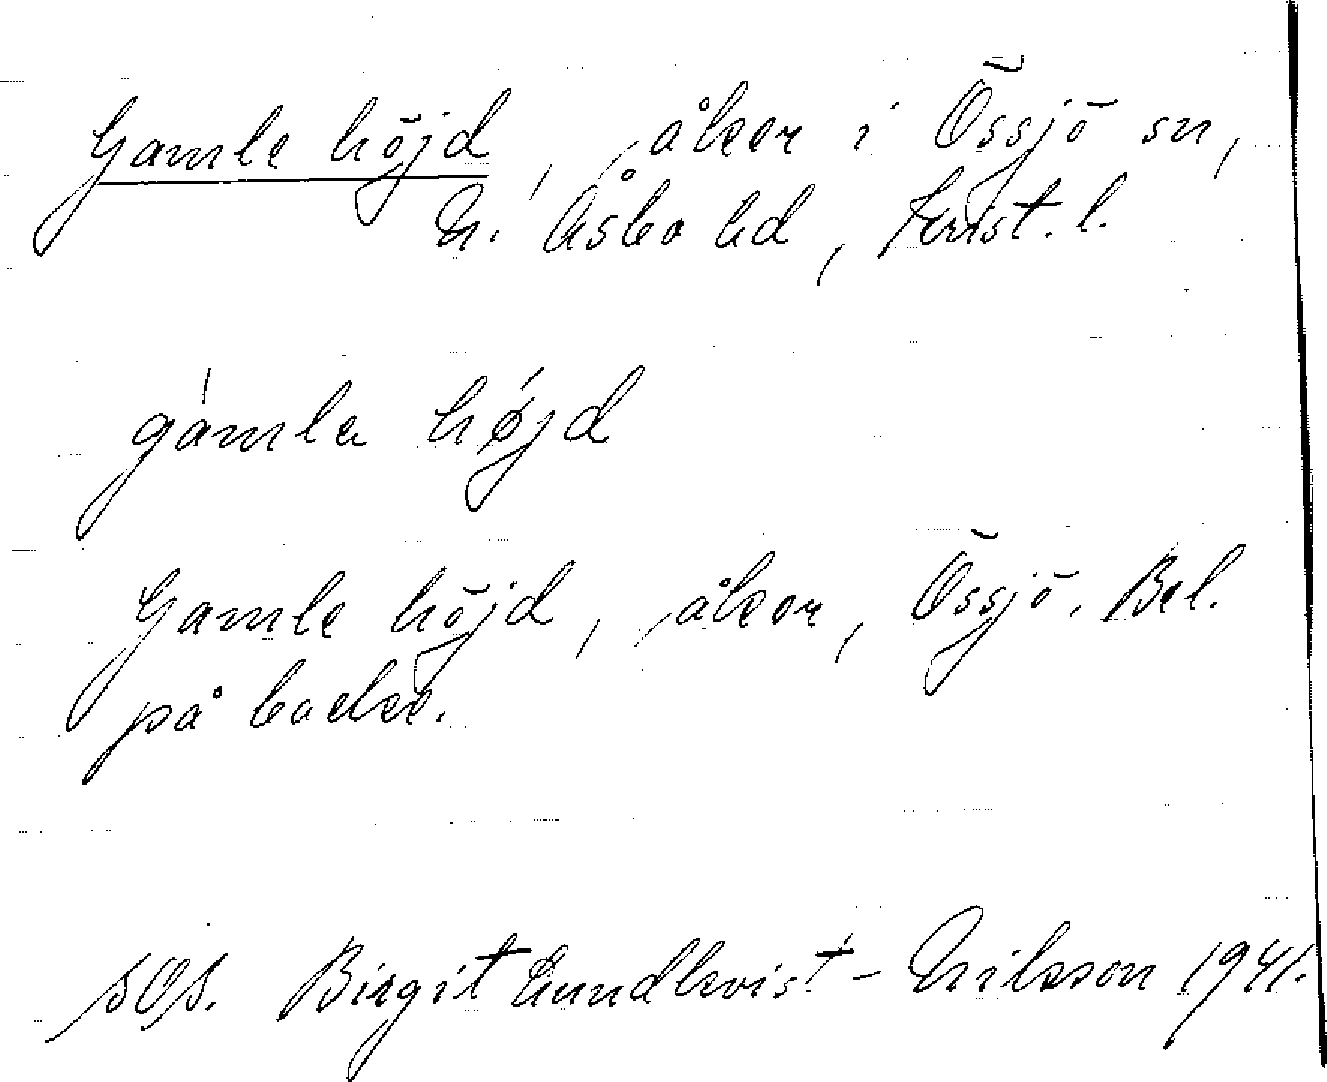 Gamle höjd, åker i Össjö sn,
N. Åsbo hd, Krist. l.
gamla højd
Gamle höjd, åker, Össjö. Bel.
på backe.
SOS. Birgit Lundkvist-Nilsson 1941.